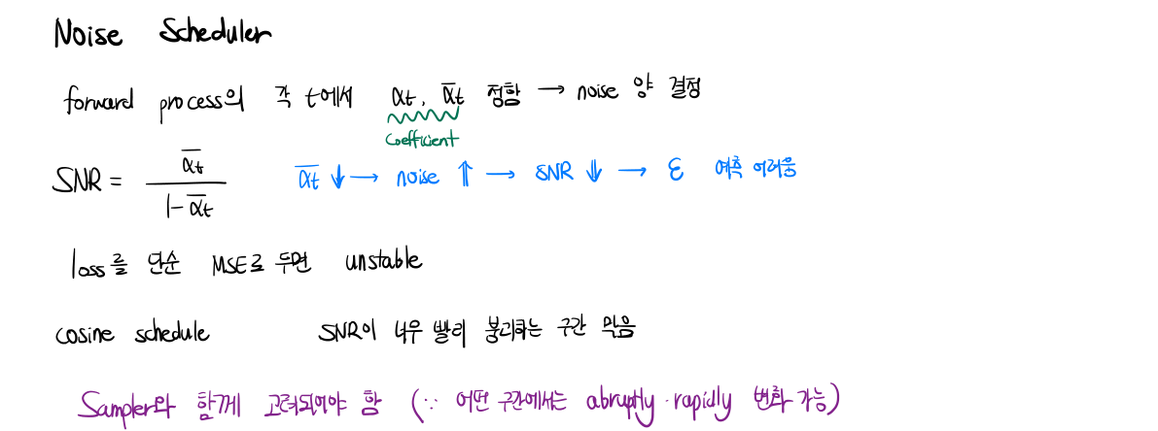 Noise Scheduler
forward process의 각 t에서 αt, ᾱt 정함 → noise 양 결정
coefficient
SNR = ᾱt / 1-ᾱt ᾱt ↓ → noise ↑ → SNR ↓ → ε 예측 어려움
loss를 단순 MSE로 두면 unstable
cosine schedule SNR이 너무 빨리 붕괴하는 구간 막음
Sampler와 함께 고려되어야 함 (∵ 어떤 구간에서는 abruptly·rapidly 변화 가능)